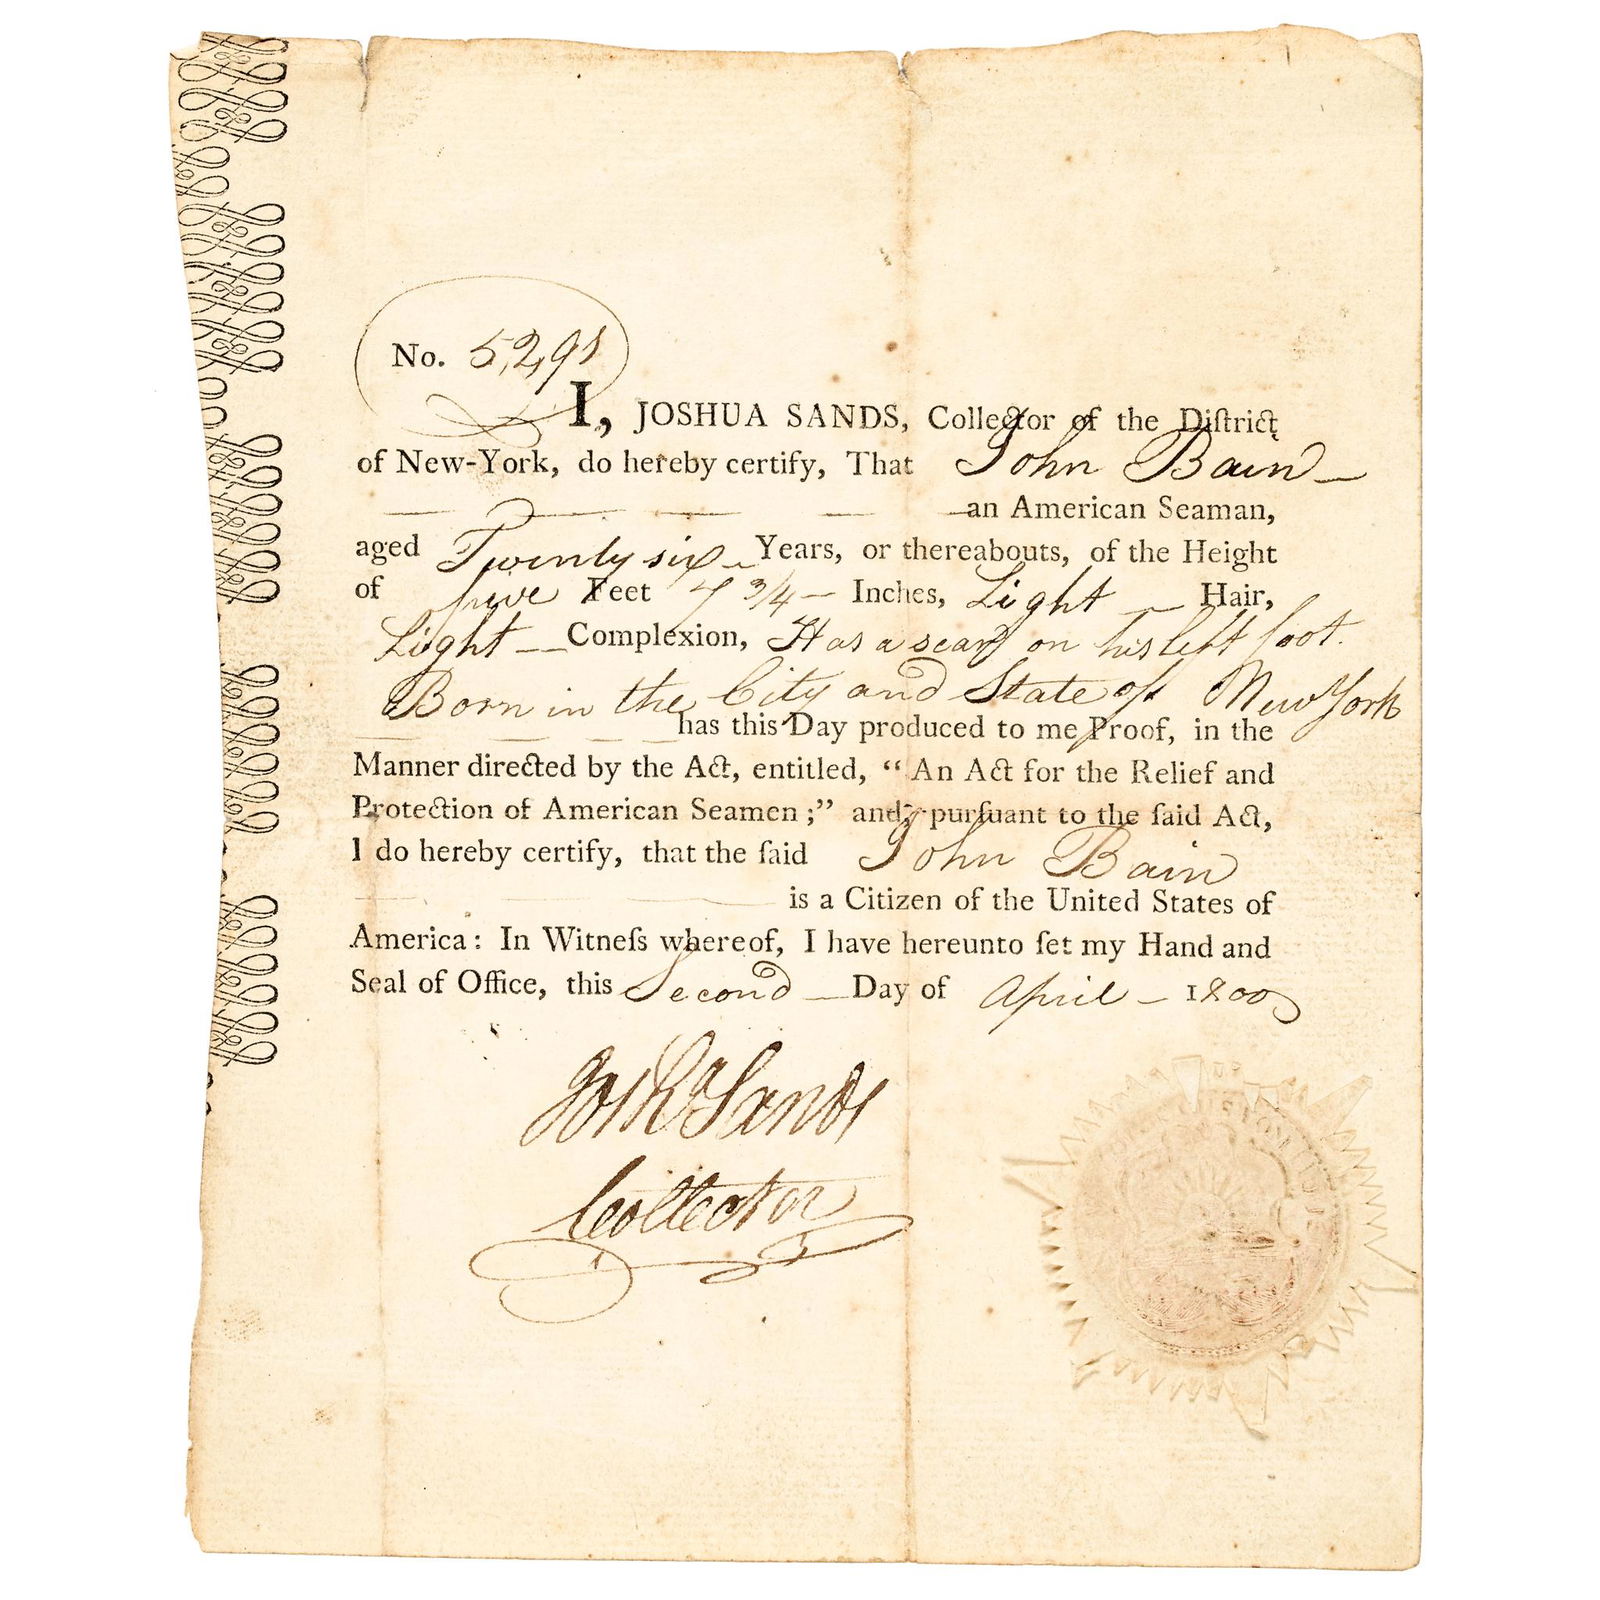 No. 5,291
I, JOSHUA SANDS, Collector of the Diſtrict
of New-York, do hereby certify, That John Bain
an American Seaman,
aged Twenty six Years, or thereabouts, of the Height
of five Feet 7 3/4 Inches, Light Hair,
Light Complexion, Has a scar on his left foot.
Born in the City and State of New York
has this Day produced to me Proof, in the
Manner directed by the Act, entitled, “ An Act for the Relief and
Protection of American Seamen ;” and, purſuant to the ſaid Act,
I do hereby certify, that the ſaid John Bain
is a Citizen of the United States of
America: In Witneſs whereof, I have hereunto ſet my Hand and
Seal of Office, this Second Day of April 1800
Josha Sands
Collector